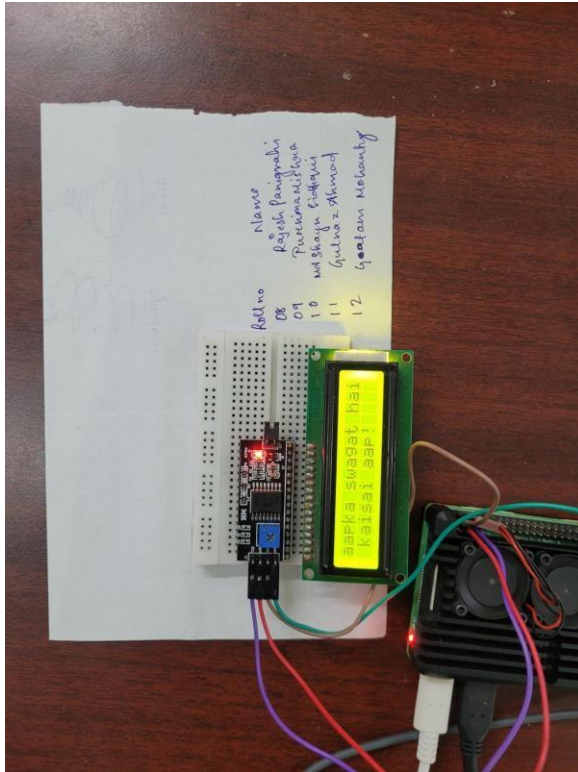 Roll no Name
08 Rajesh Panigrahi
09 Purnima Mishra
10 Md Shayn Siddiqui
11 Gulnaz Ahmad
12 Goatam Mohanty
aapka swagat hai
kaisai aap!